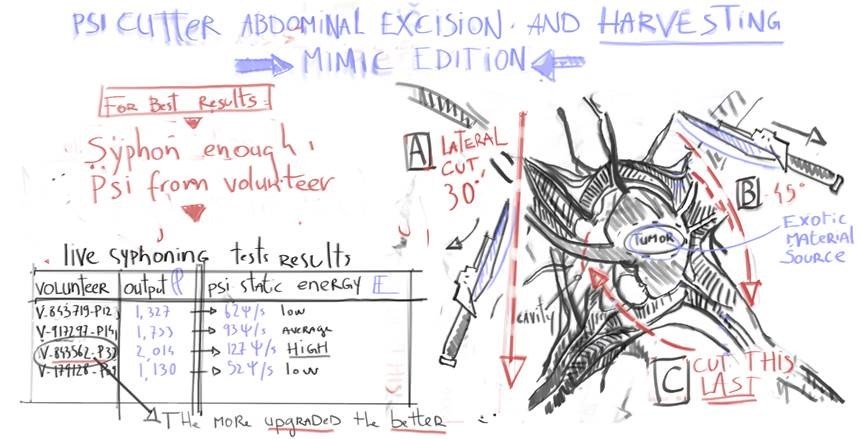 PSI CUTTER ABDOMINAL EXCISION AND HARVESTING
MIMIC EDITION
FOR BEST RESULTS:
Syphon enough
Psi from volunteer
live syphoning tests results
VOLUNTEER output psi static energy E
V-843719-P12 1,327 62Ψ/s low
V-917297-P14 1,733 93Ψ/s AVERAGE
V-843562-P37 2,014 127Ψ/s HIGH
1,130 52Ψ/s low
THE MORE upgraded the better
A LATERAL
CUT
30°
B 45°
TUMOR
EXOTIC
MATERIAL
SOURCE
CAVITY
C CUT THIS
LAST